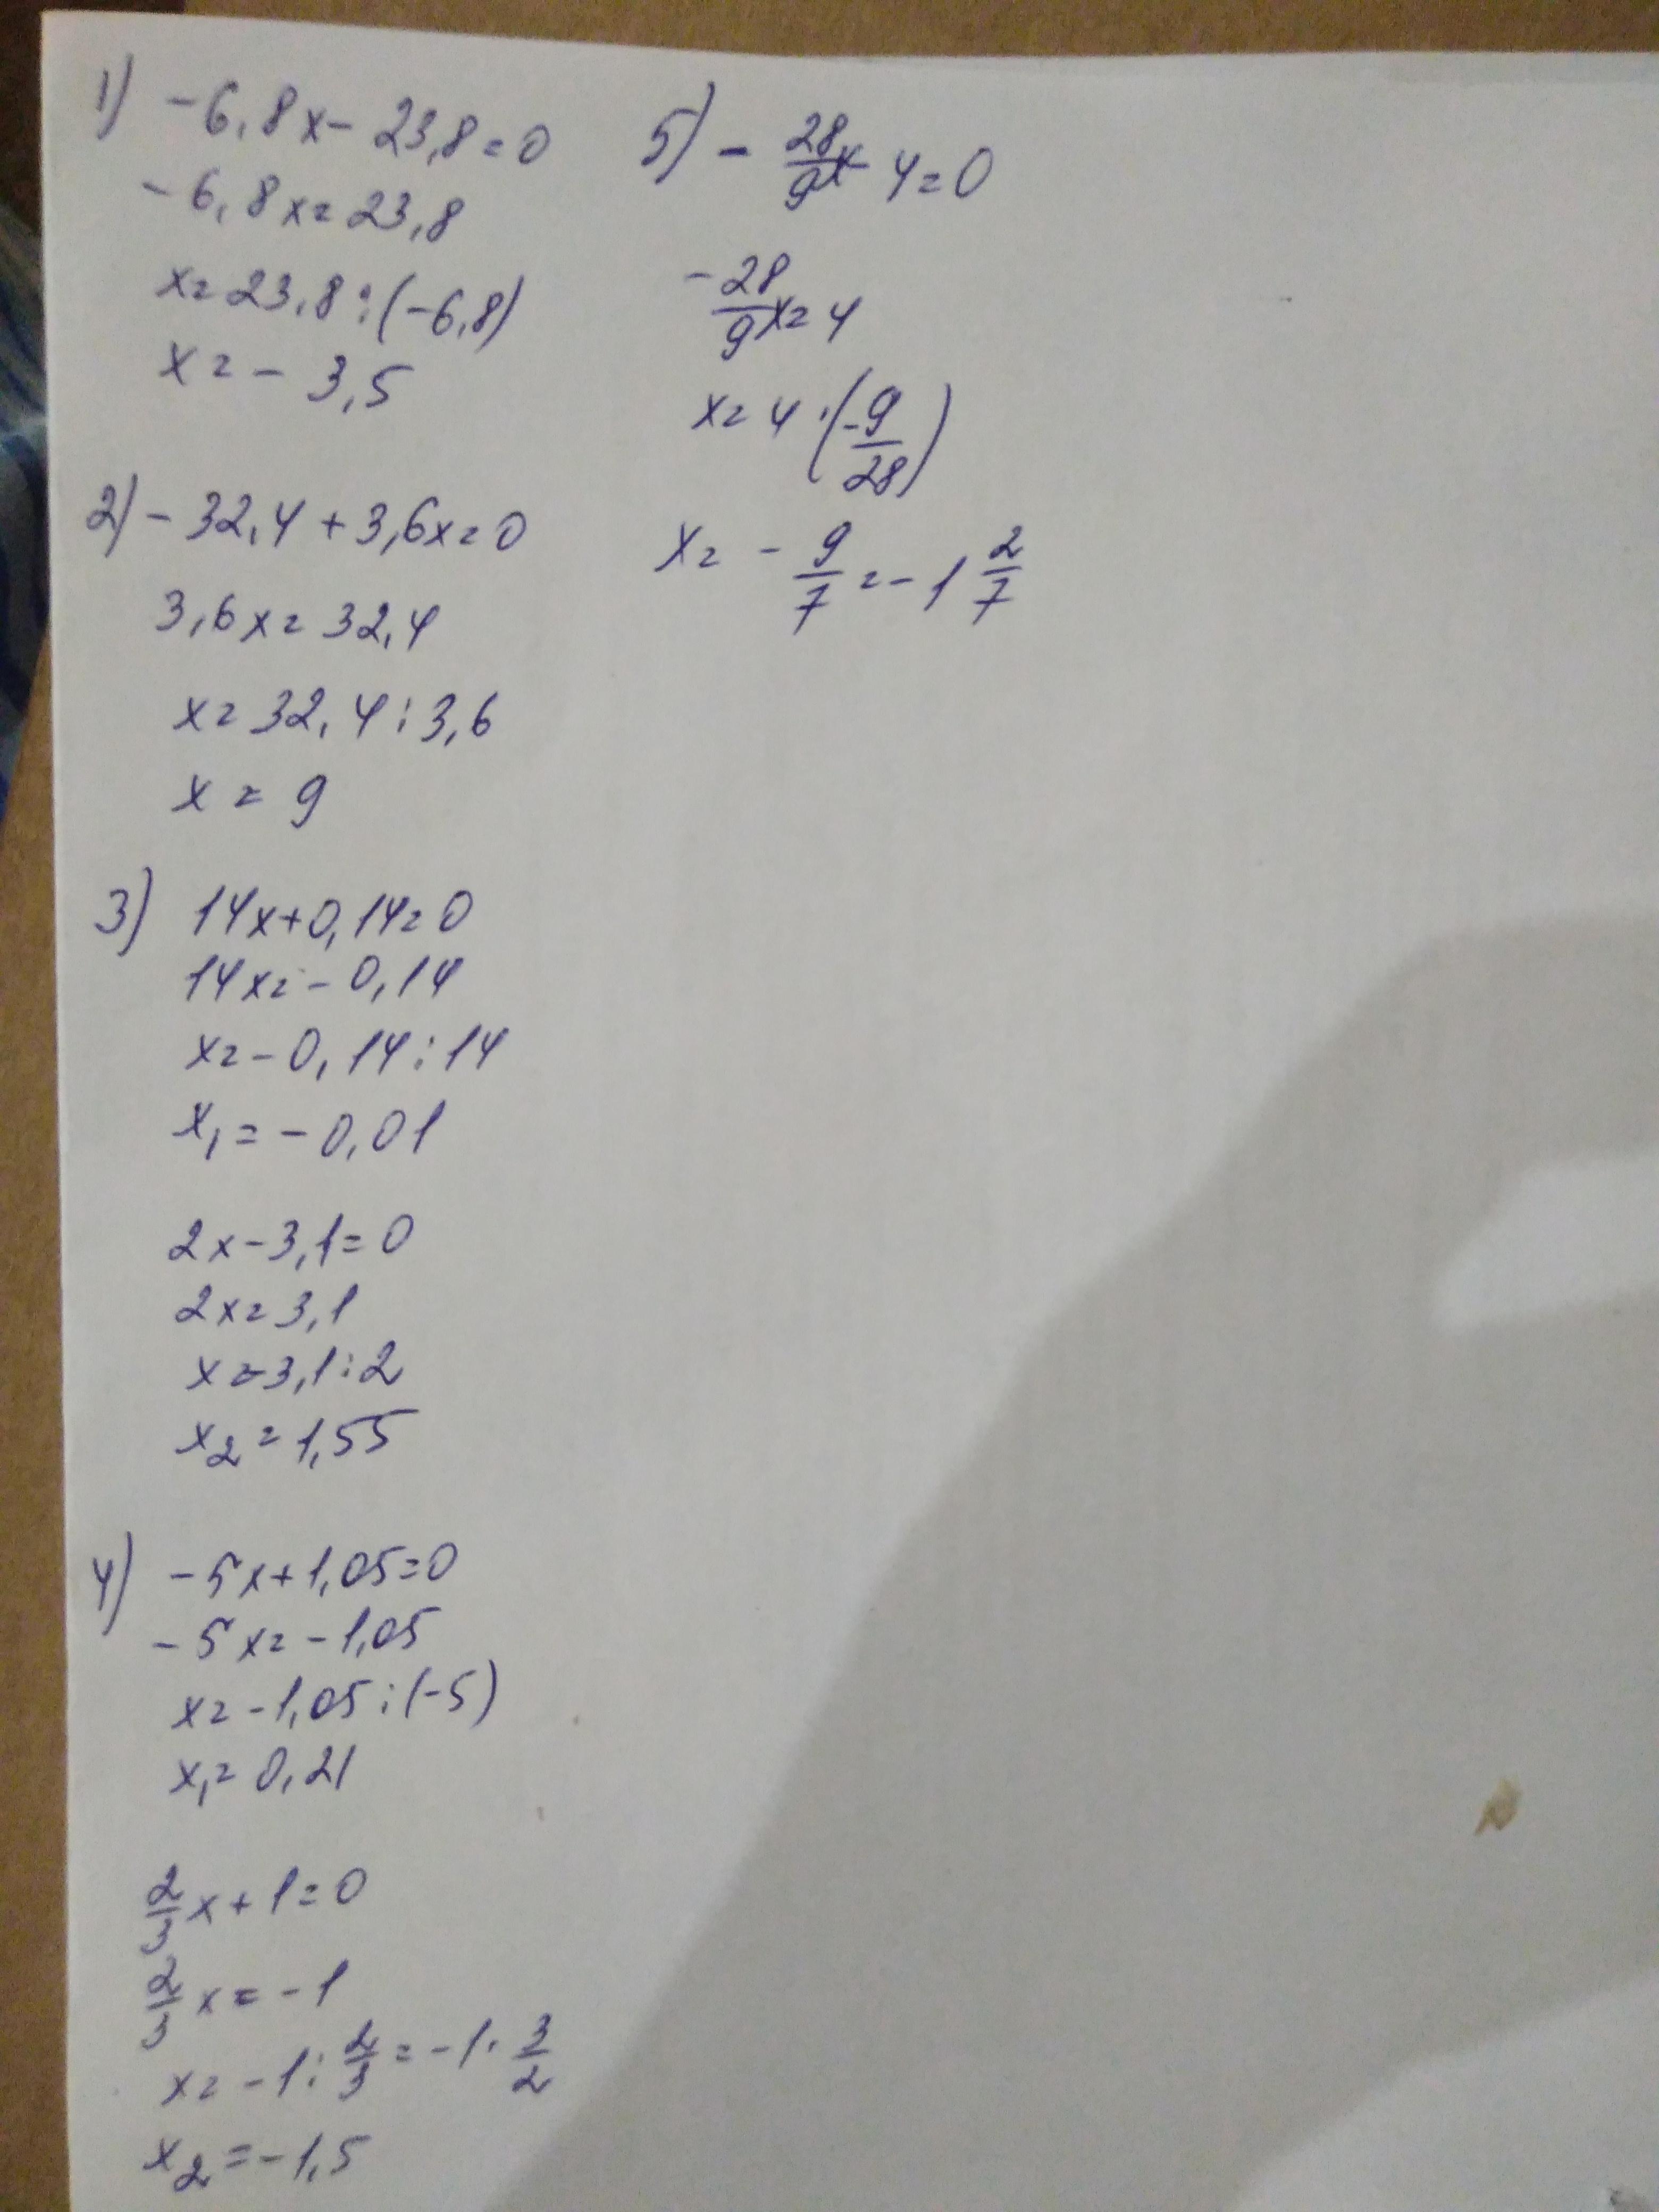 1) -6,8x - 23,8 = 0
-6,8x = 23,8
x = 23,8 : (-6,8)
x = - 3,5
2) - 32,4 + 3,6x = 0
3,6x = 32,4
x = 32,4 : 3,6
x = 9
3) 14x + 0,14 = 0
14x = - 0,14
x = - 0,14 : 14
x₁ = - 0,01
2x - 3,1 = 0
2x = 3,1
x = 3,1 : 2
x₂ = 1,55
4) - 5x + 1,05 = 0
- 5x = - 1,05
x = - 1,05 : (-5)
x₁ = 0,21
2/3 x + 1 = 0
2/3 x = - 1
x = - 1 : 2/3 = - 1 · 3/2
x₂ = - 1,5
5) - 28/9 x - 4 = 0
- 28/9 x = 4
x = 4 · (- 9/28)
x = - 9/7 = - 1 2/7